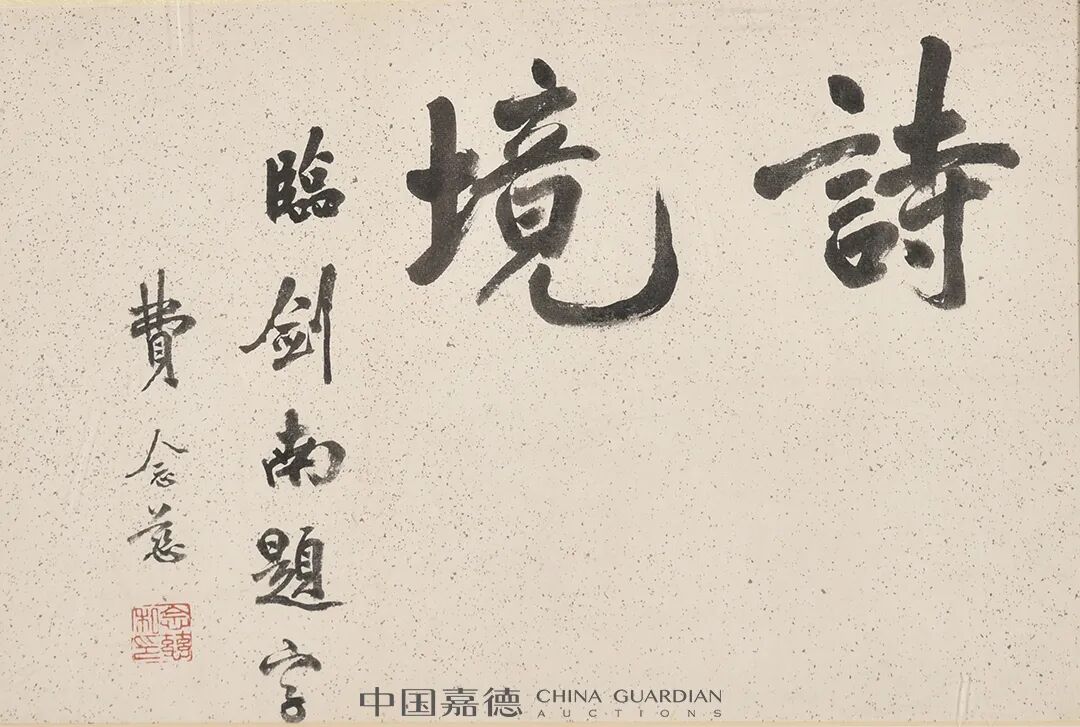 詩境
臨劍南題字
費念慈
念慈私印
中国嘉德 CHINA GUARDIAN
AUCTIONS